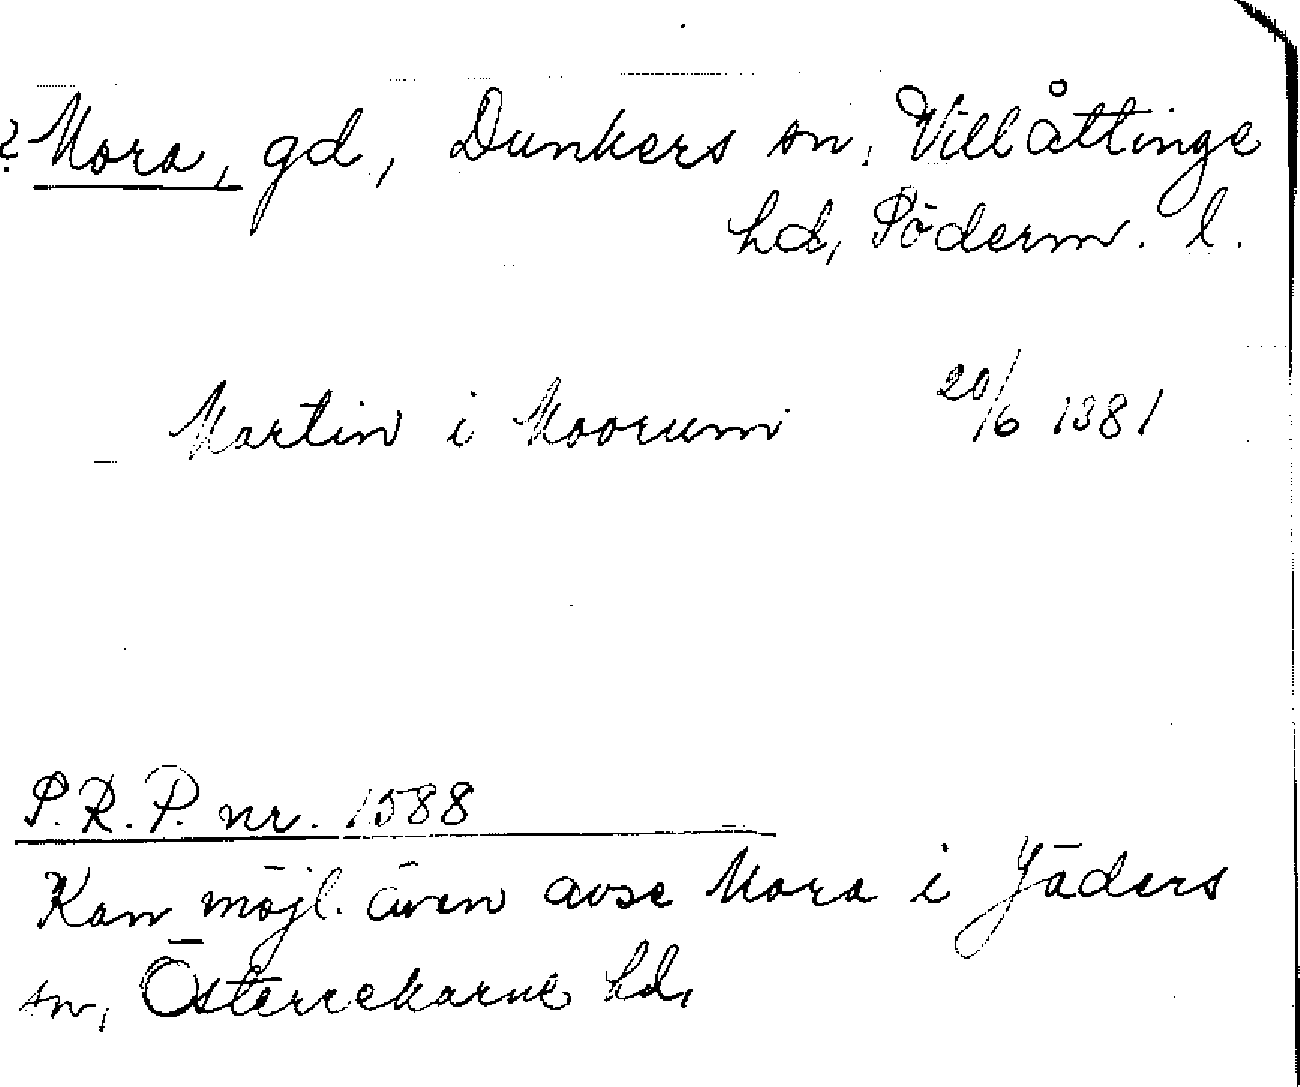 ? Mora, gd, Dunkers sn, Villåttinge
hd, Söderm. l.
Martin i Moorum 20/6 1381
S.R.P. nr. 1588
Kan möjl. även avse Mora i Jäders
sn, Österrekarne hd,